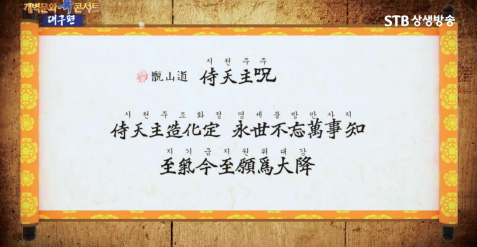 개벽문화 북 콘서트
대구편
STB 상생방송
시천주주
侍天主呪 道山觀
시천주조화정 영세불망만사지
侍天主造化定 永世不忘萬事知
지기금지원위대강
至氣今至願爲大降